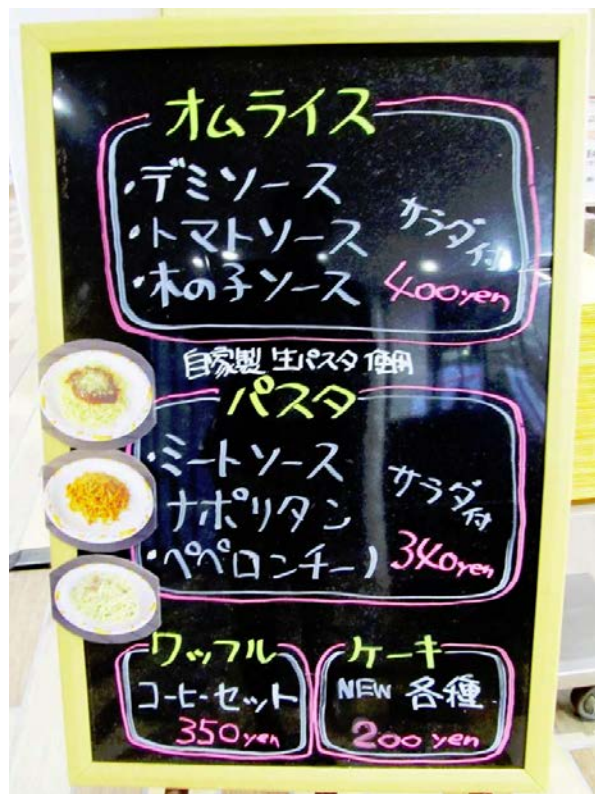 オムライス
・デミソース
・トマトソース
・木の子ソース
サラダ付
400yen
自家製 生パスタ 使用
パスタ
・ミートソース
ナポリタン
・ペペロンチーノ
サラダ付
340yen
ワッフル
コーヒーセット
350yen
ケーキ
NEW 各種
200 yen